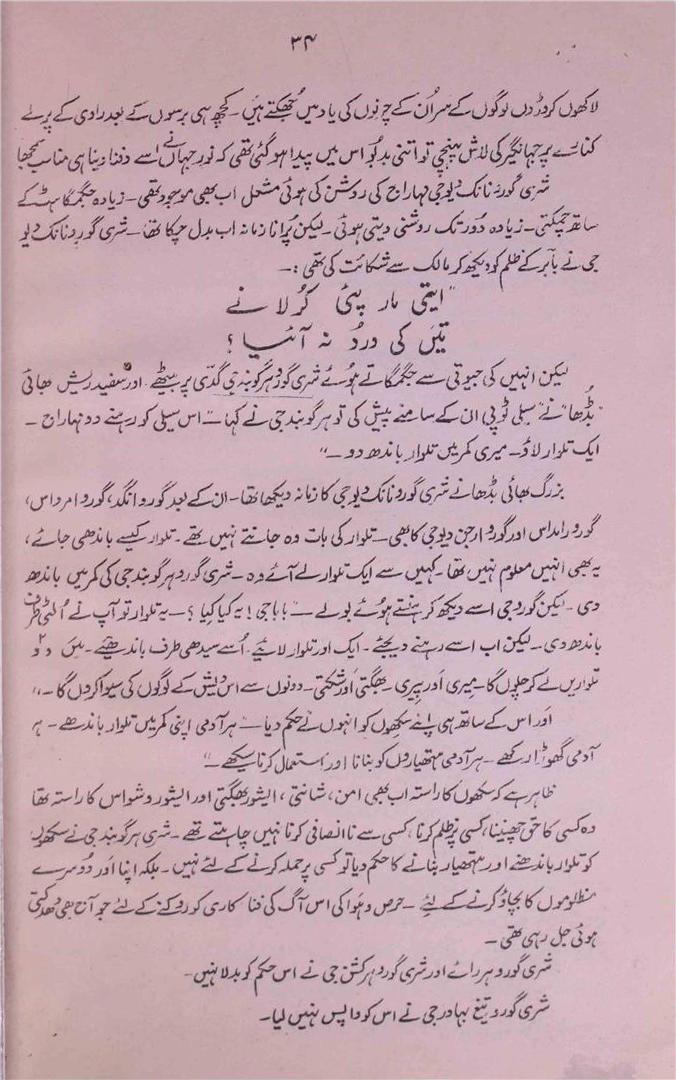 ۳۴
لاکھوں کروڑوں لوگوں کے سر اُن کے چرنوں کی یاد میں جُھکتے ہیں ۔ کچھ ہی برسوں کے بعد راوی کے پرلے
کنارے پر جہانگیر کی لاش پہنچی تو اتنی بدبُو اس میں پیدا ہو گئی تھی کہ نور جہاں نے اُسے دفنا دینا ہی مناسب سمجھا
شری گورو نانک دیو جی مہاراج کی روشن کی ہوئی مشعل اب بھی موجود تھی ۔ زیادہ جگمگاہٹ کے
ساتھ چمکتی ۔ زیادہ دُور تک روشنی دیتی ہوئی ۔ لیکن پُرانا زمانہ اب بدل چکا تھا ۔ شری گورو نانک دیو
جی نے بابر کے ظلم کو دیکھ کر مالک سے شکائت کی تھی :۔
"ایتی مار پئی کُرلانے
تَیں کی دردُ نہ آئیا ؟
لیکن انہیں کی جیوتی سے جگمگاتے ہوئے شری گورو ہرگوبند جی گدّی پر بیٹھے اور سفید ریش بھائی
بُڈھا نے سیلی ٹوپی ان کے سامنے پیش کی تو ہرگوبند جی نے کہا ــ اس سیلی کو رہنے دو مہاراج ۔
ایک تلوار لاؤ ۔ میری کمر میں تلوار باندھ دو ۔"
بزرگ بھائی بڈھا نے شری گورو نانک دیو جی کا زمانہ دیکھا تھا ۔ ان کے بعد گورو انگد، گورو امر داس،
گورو رامداس اور گورو ارجن دیو جی کا بھی ۔ تلوار کی بات وہ جانتے نہیں تھے ۔ تلوار کیسے باندھی جائے،
یہ بھی انہیں معلوم نہیں تھا ۔ کہیں سے ایک تلوار لے آئے وہ ۔ شری گورو ہرگوبند جی کی کمر میں باندھ
دی ۔ لیکن گورو جی اسے دیکھ کر ہنستے ہوئے بولے ــ بابا جی ! یہ کیا کِیا ؟ ــ یہ تلوار تو آپ نے اُلٹی طرف
باندھ دی ۔ لیکن اب اسے رہنے دیجئے ۔ ایک اور تلوار لائیے ۔ اُسے سیدھی طرف باندھئیے ۔ میں دو
تلواریں لے کر چلوں گا ۔ میری اور پیری ۔ بھگتی اور شکتی ۔ دونوں سے اس دیش کے لوگوں کی سیوا کروں گا ۔"
اور اس کے ساتھ ہی اپنے سکھوں کو انہوں نے حکم دیا ــ ہر آدمی اپنی کمر میں تلوار باندھے ۔ ہر
آدمی گھوڑا رکھے ۔ ہر آدمی ہتھیاروں کو بنانا اور استعمال کرنا سیکھے ۔"
ظاہر ہے کہ سکھوں کا راستہ اب بھی امن، شانتی، ایشور بھگتی اور ایشور وشواس کا راستہ تھا
وہ کسی کا حق چھیننا، کسی پر ظلم کرنا، کسی سے ناانصافی کرنا نہیں چاہتے تھے ۔ شری ہرگوبند جی نے سکھوں
کو تلوار باندھنے اور ہتھیار بنانے کا حکم دیا تو کسی پر حملہ کرنے کے لئے نہیں ۔ بلکہ اپنا اور دُوسرے
مظلوموں کا بچاؤ کرنے کے لئے ۔ حرص و ہوا کی اس آگ کی فنا کاری کو روکنے کے لئے جو آج بھی دھدکتی
ہوئی جل رہی تھی ۔
شری گورو ہررائے اور شری گورو ہرکشن جی نے اس حکم کو بدلا نہیں ۔
شری گورو تیغ بہادر جی نے اس کو واپس نہیں لیا ۔